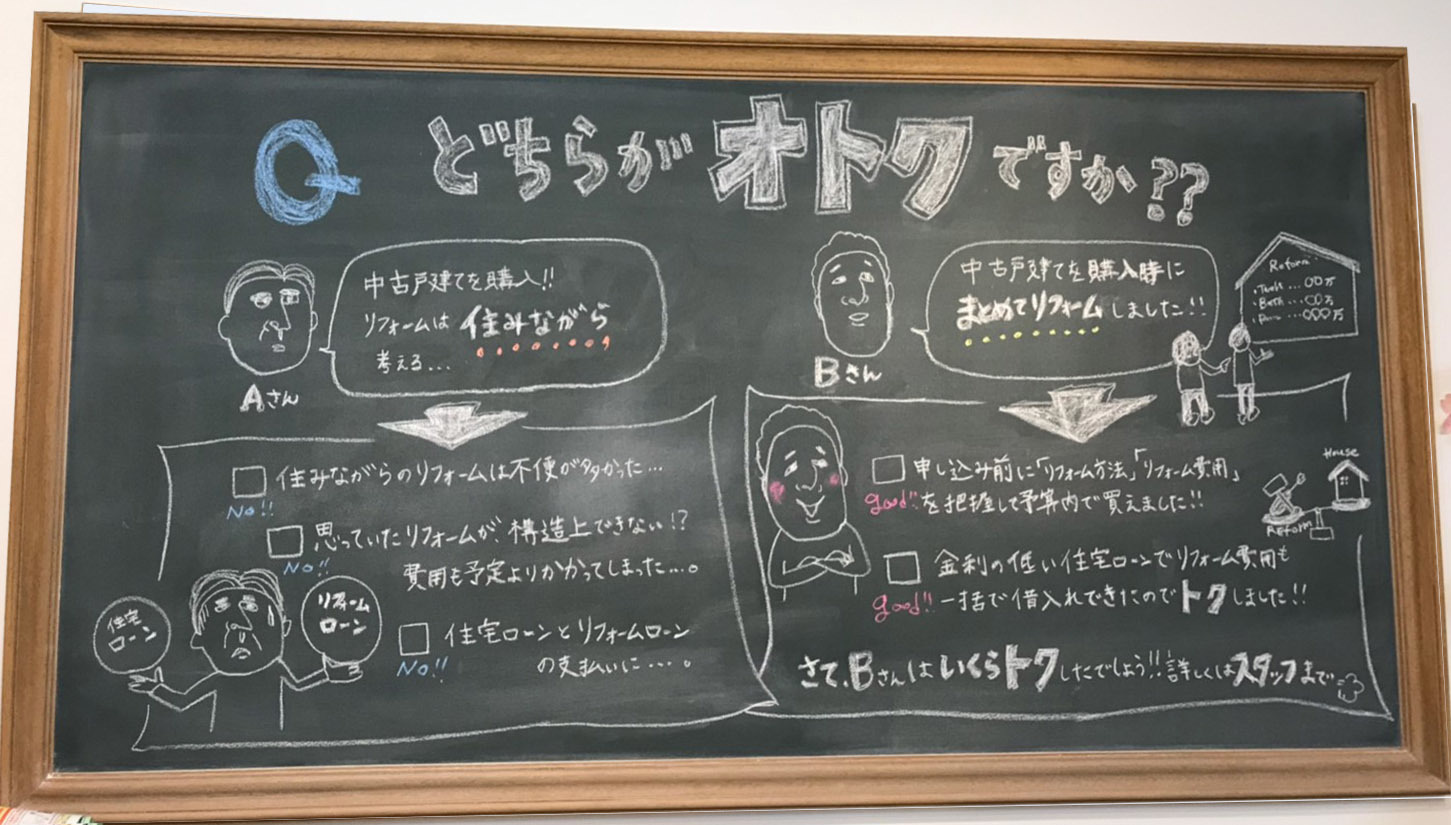 Q どちらがオトクですか??
中古戸建てを購入!!
リフォームは住みながら
考える...
Aさん
住みながらのリフォームは不便が多かった...
No!!
思っていたリフォームが、構造上できない!?
No!!
費用も予定よりかかってしまった...。
住宅
ローン
リフォーム
ローン
住宅ローンとリフォームローン
No!!
の支払いに...。
中古戸建てを購入時に
まとめてリフォームしました!!
Bさん
Reform
...〇〇万
Bath...〇〇万
...〇〇〇万
申し込み前に「リフォーム方法」「リフォーム費用」
good!! を把握して予算内で買えました!!
House
REFORM
金利の低い住宅ローンでリフォーム費用も
good!! 一括で借入れできたのでトクしました!!
さて、Bさんはいくらトクしたでしょう!!詳しくはスタッフまで